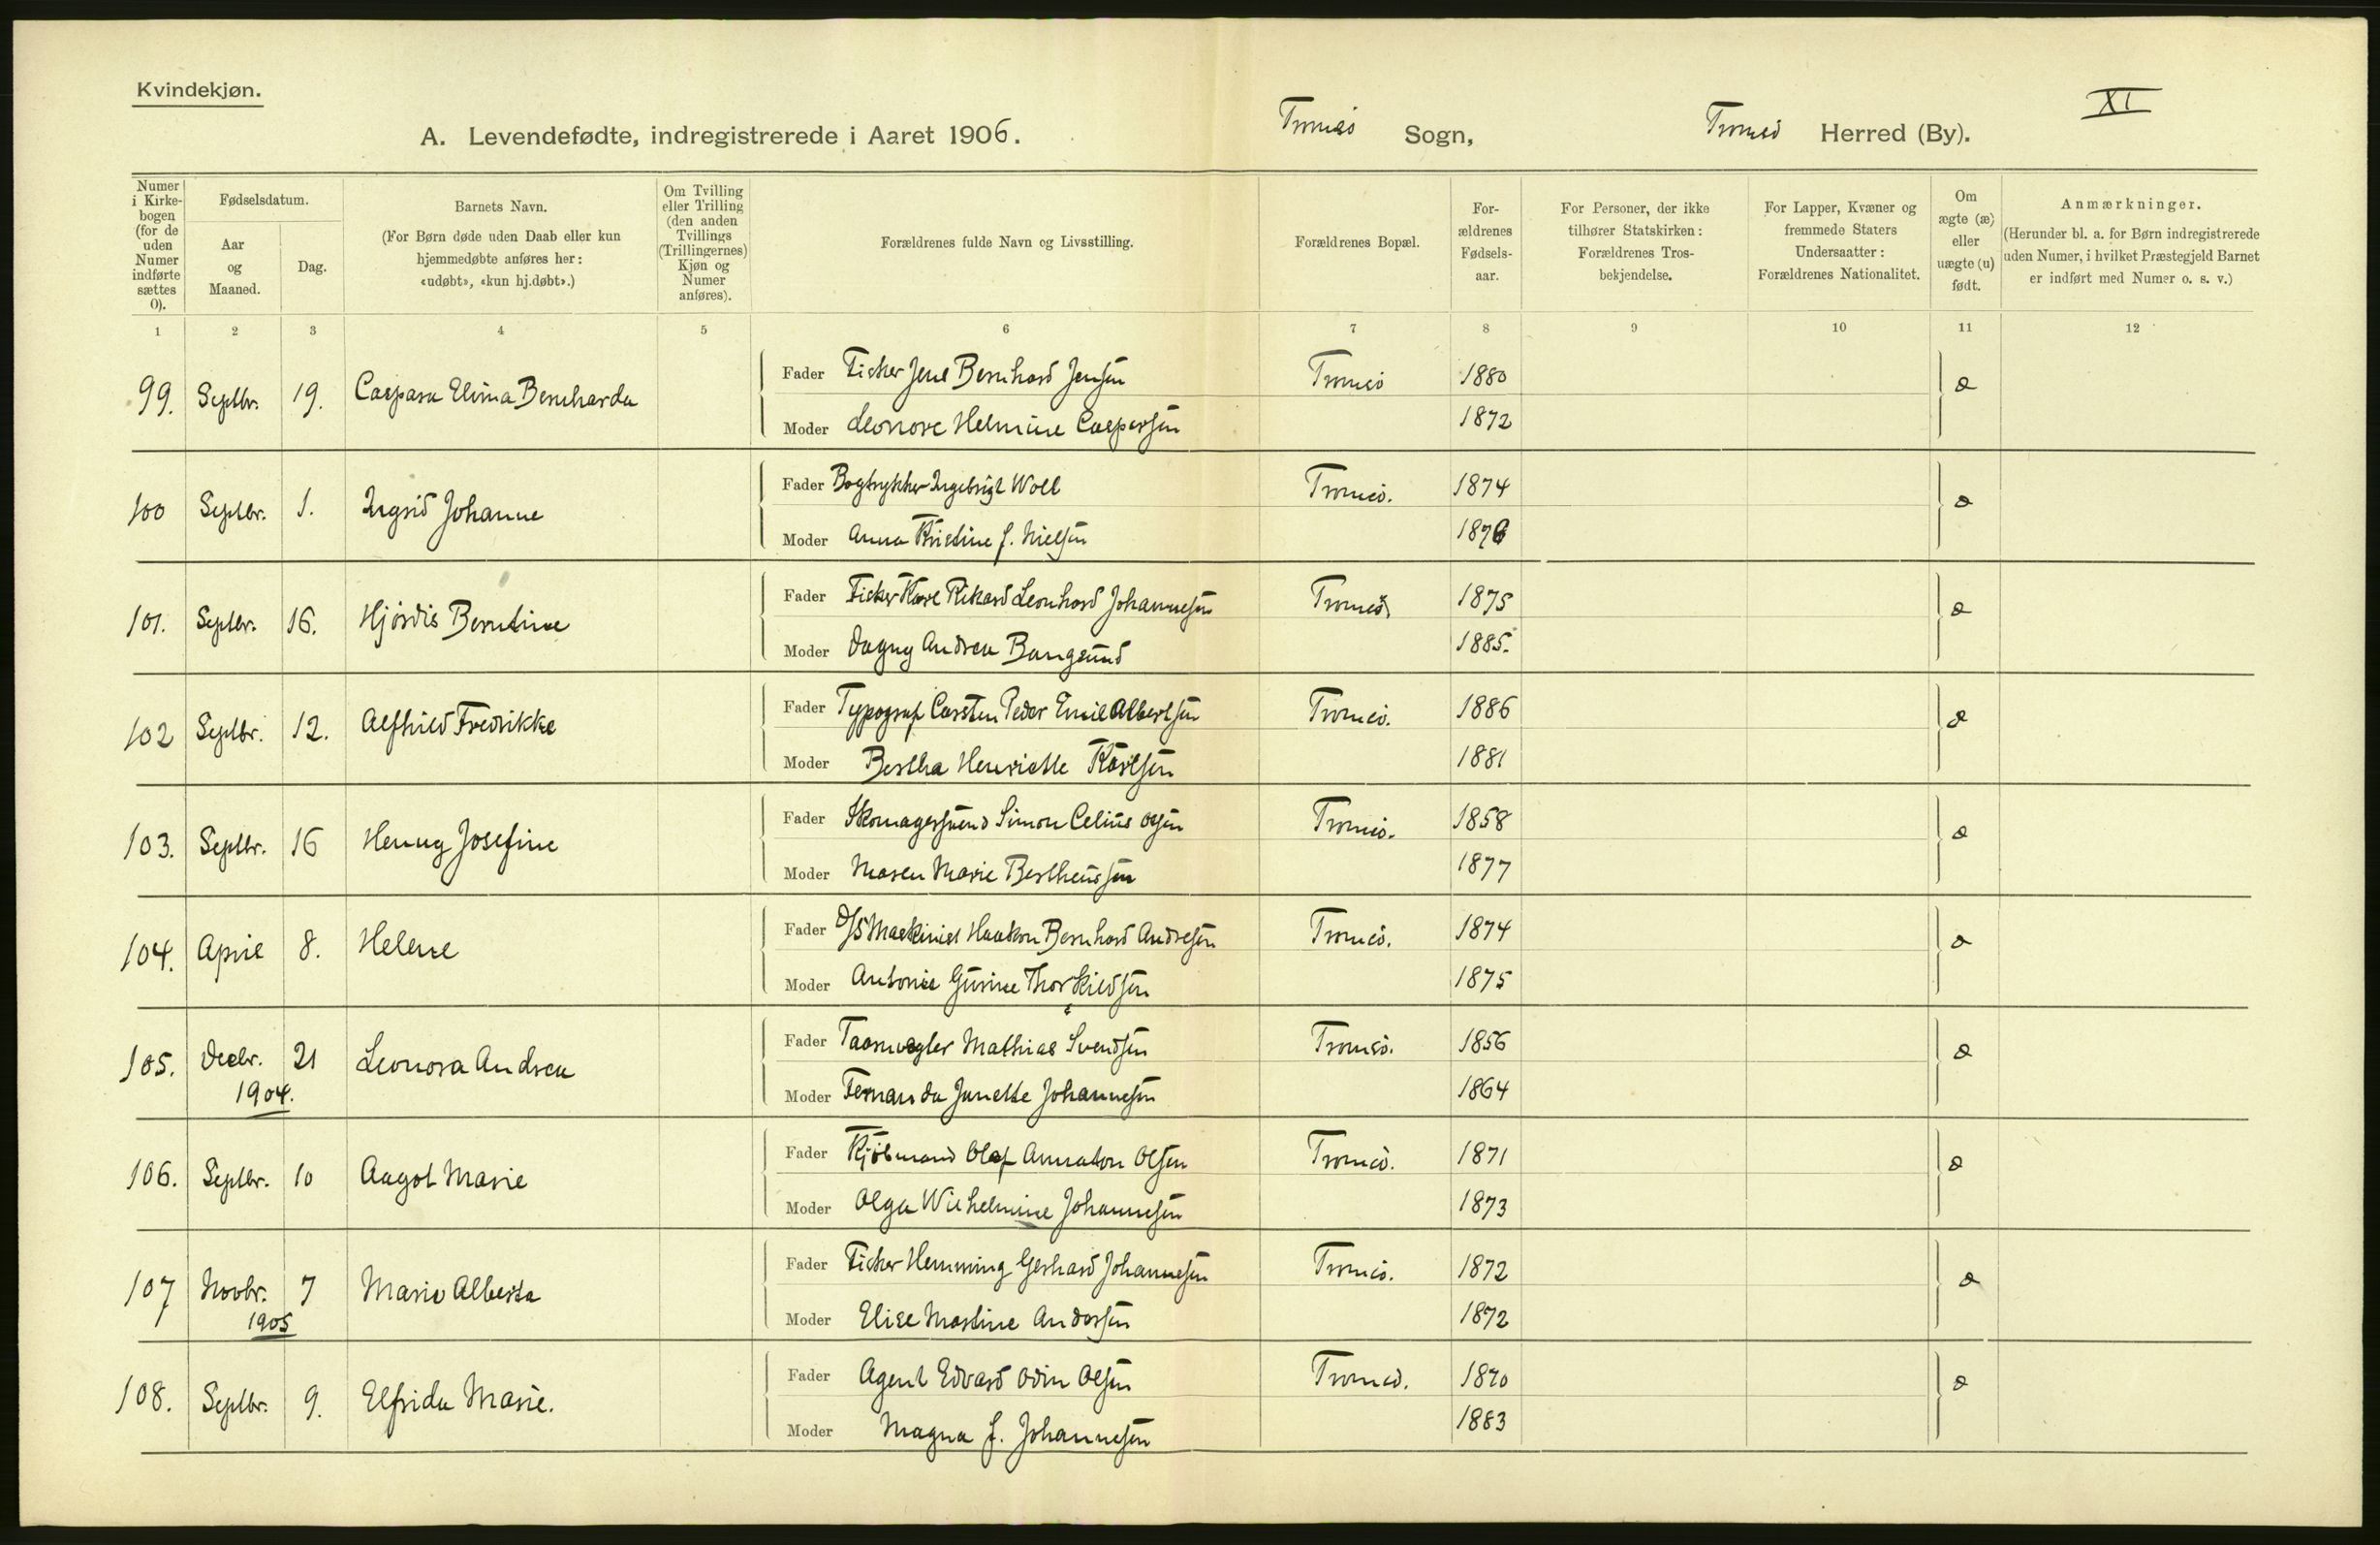 Kvindekjøn.
XI
A. Levendefødte, indregistrerede i Aaret 1906. Tromsö Sogn, Tromsö Herred (By).
Numer i Kirke-bogen (for de uden Numer indførte sættes 0).
Fødselsdatum.
Aar og Maaned.
Dag.
Barnets Navn.
(For Børn døde uden Daab eller kun hjemmedøbte anføres her: «udøbt», «kun hj.døbt».)
Om Tvilling eller Trilling (den anden Tvillings (Trillingernes) Kjøn og Numer anføres).
Forældrenes fulde Navn og Livsstilling.
Forældrenes Bopæl.
For-ældrenes Fødsels-aar.
For Personer, der ikke tilhører Statskirken: Forældrenes Tros-bekjendelse.
For Lapper, Kvæner og fremmede Staters Undersaatter: Forældrenes Nationalitet.
Om ægte (æ) eller uægte (u) født.
Anmærkninger.
(Herunder bl. a. for Børn indregistrerede uden Numer, i hvilket Præstegjeld Barnet er indført med Numer o. s. v.)
1 2 3 4 5 6 7 8 9 10 11 12
99. Septbr. 19. Caspara Elima Bernharda Fader Fisker Jens Bernhard Jensen Tromsö 1880 æ
Moder Leonore Helmine Caspersen 1872
100 Septbr. 1. Ingrid Johanne Fader Bogtrykker Ingebrigt Woll Tromsö. 1874 æ
Moder Anna Kristine f. Nielsen 1876
101. Septbr. 16. Hjördis Berntine Fader Fisker Karl Rikard Leonhard Johannesen Tromsö. 1875 æ
Moder Dagny Andrea Bangsund 1885.
102 Septbr. 12. Alfhild Fredrikke Fader Typograf Carsten Peder Emil Albertsen Tromsö. 1886 æ
Moder Bertha Henriette Karlsen 1881
103. Septbr. 16 Henny Josefine Fader Skomagersvend Simon Celius Olsen Tromsö. 1858 æ
Moder Maren Marie Bertheussen 1877
104. April 8. Helene Fader D/S Maskinist Haakon Bernhard Andresen Tromsö. 1874 æ
Moder Antonie Gurine Thorkildsen 1875
105. Decbr. 21 Leonora Andrea Fader Taarnvægter Mathias Svendsen Tromsö. 1856 æ
1904. Moder Fernanda Janette Johannesen 1864
106. Septbr. 10 Aagot Marie Fader Kjöbmand Olaf Annaton Olsen Tromsö. 1871 æ
Moder Olga Wilhelmine Johannesen 1873
107 Novbr. 7 Marie Alberta Fader Fisker Hemming Gerhard Johannesen Tromsö. 1872 æ
1905 Moder Elise Martine Andersen 1872
108. Septbr. 9. Elfrida Marie. Fader Agent Edvard Odin Olsen Tromsö. 1870 æ
Moder Magna f. Johannesen 1883